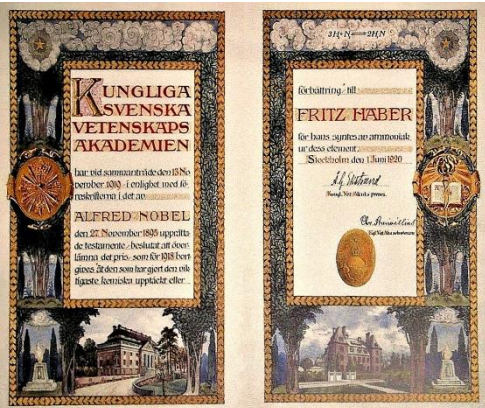 KUNGLIGA
SVENSKA
VETENSKAPS
AKADEMIEN
har vid sammanträde den 13 No
vember 1919 i enlighet med fö
reskrifterna i det av
ALFRED NOBEL
den 27. November 1895 upprätta
de testamente beslutat att över
lämna det pris som för 1918 bort
gives åt den som har gjort den vik
tigaste kemiska upptäckt eller
förbättring till
FRITZ HABER
för hans syntes av ammoniak
ur dess element
Stockholm den 1 Juni 1920